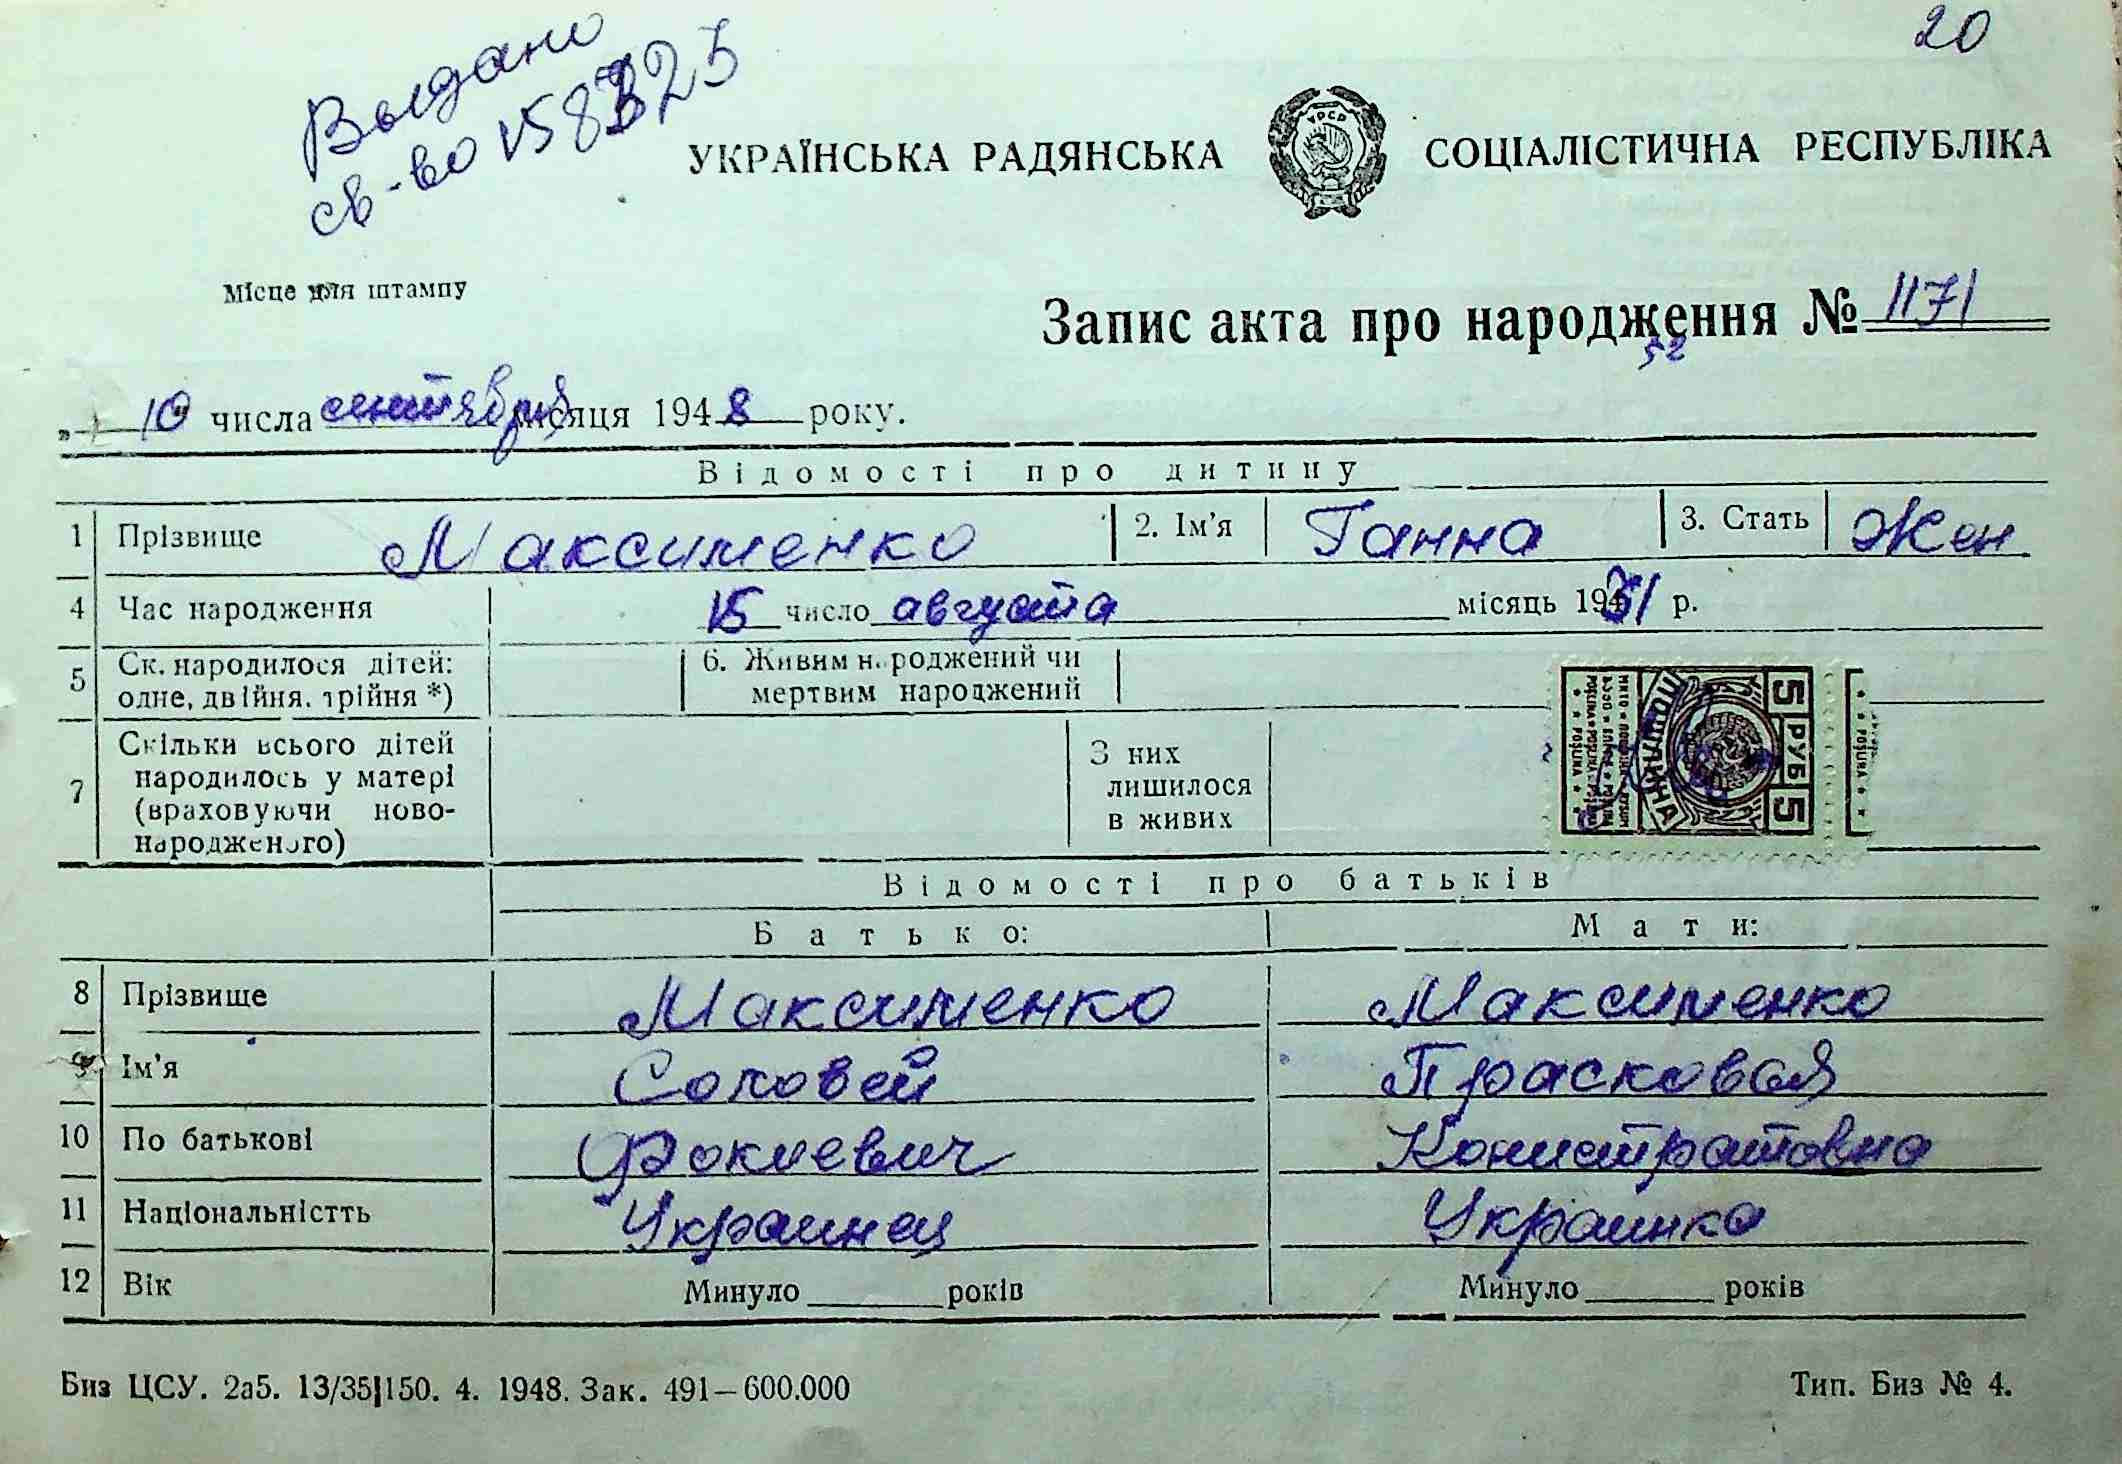 20
Выдано
св-во
УКРАЇНСЬКА РАДЯНСЬКА СОЦІАЛІСТИЧНА РЕСПУБЛІКА
УРСР
Місце для штампу
Запис акта про народження № 1171
52
„ 10 числа сентября місяця 1948 року.
Відомості про дитину
1 Прізвище Максименко 2. Ім'я Ганна 3. Стать Жен
4 Час народження 15 число августа місяць 1931 р.
5 Ск. народилося дітей: одне, двійня, трійня *) 6. Живим народжений чи мертвим народжений
7 Скільки всього дітей народилось у матері (враховуючи ново-народженого) З них лишилося в живих
5 РУБ 5
ПОШЛИНА
Відомості про батьків
Батько: Мати:
8 Прізвище Максименко Максименко
9 Ім'я Соловей Прасковья
10 По батькові Фокиевич Конистратовна
11 Національністть Украинец Украинка
12 Вік Минуло років Минуло років
Биз ЦСУ. 2а5. 13/35|150. 4. 1948. Зак. 491—600.000 Тип. Биз № 4.